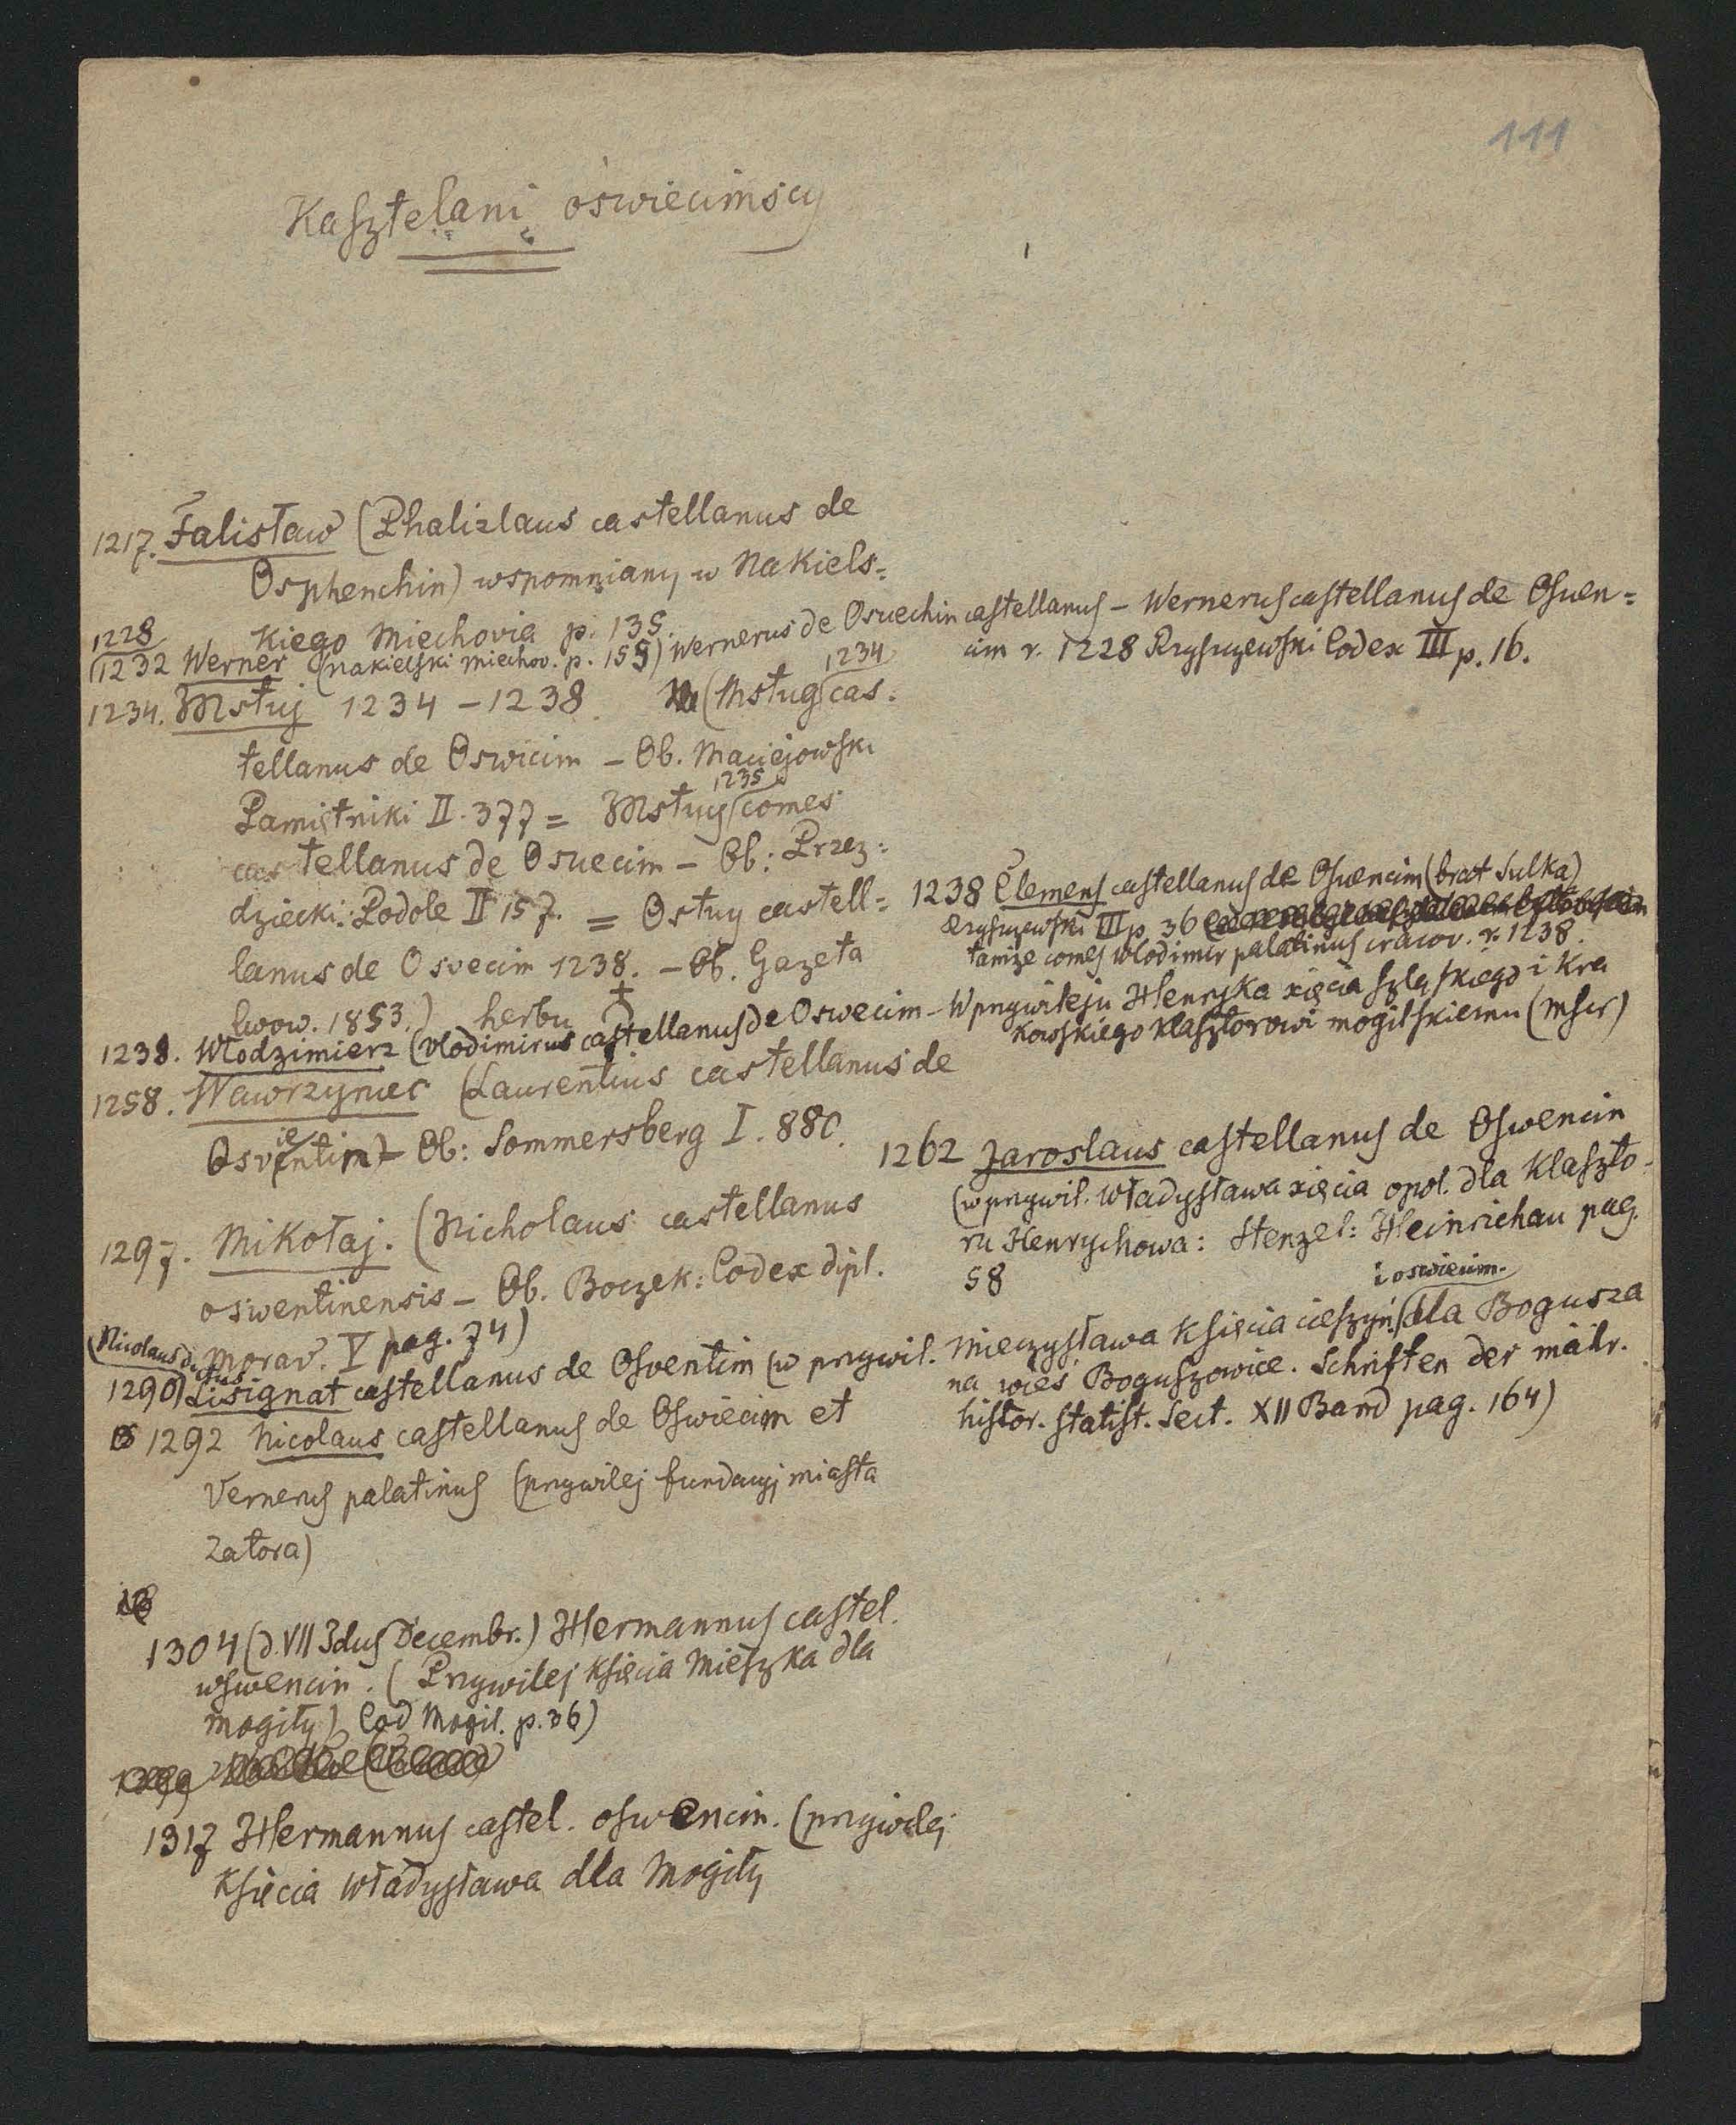 111
Kasztelani oświęcimscy
1217. Falisław (Phalizlaus castellanus de
Osphenchin) wspomniany w Nakiels=
kiego Miechovia p. 135.
1228
1232 Werner (Nakielski Miechov. p. 155) Wernerus de Osuechin castellanus – Wernerus castellanus de Osuen=
cim r. 1228 Rzyszczewski Codex III p. 16.
1234. Mstuj 1234 – 1238 (Mstug 1234 cas=
tellanus de Oswicim – Ob. Maciejowski
Pamiętniki II. 377 = Mstuy 1235 comes
castellanus de Osuecim – Ob: Przez=
dziecki: Podole II 157. = Ostuy castell=
lanus de Osvecim 1238. – Ob. Gazeta
lwow. 1853.) herbu
1238 Clemens castellanus de Osuencim (brat Sulka)
Rzyszczewski III p. 36
tamże comes Wlodimir palatinus cracov. r. 1238.
1238. Włodzimierz (Vlodimirus castellanus de Oswecim – W przywileju Henryka xięcia szląskiego i kra
kowskiego klasztorowi mogilskiemu (Mscr)
1258. Wawrzyniec (Laurentius castellanus de
Osvientim) – Ob: Sommersberg I. 880.
1262 Jaroslaus castellanus de Oswencin
(w przywil. Władysława xięcia opol. dla klaszto-
ru Henrychowa: Stenzel: Heinrichau pag.
58
1297. Mikołaj. (Nicholaus castellanus
oswentinensis – Ob. Boczek: Codex dipl.
morav. V pag. 74)
(Nicolaus dictus
1290) Lisignat castellanus de Osventim (w przywil. Mieczysława księcia cieszyń. i oswiecim. dla Bogusza
na wieś Boguszowice. Schriften der mähr.
histor. statist. Sect. XII Band pag. 164)
1292 Nicolaus castellanus de Oswiecim et
Vernerus palatinus (przywilej fundacyj miasta
Zatora)
1304 (d. VII Idus Decembr.) Hermannus castel.
wswencin. (Przywilej księcia Mieszka dla
Mogiły) Cod Mogil. p. 36)
1317 Hermannus castel. oswencim. (przywilej
księcia Władysława dla Mogiły